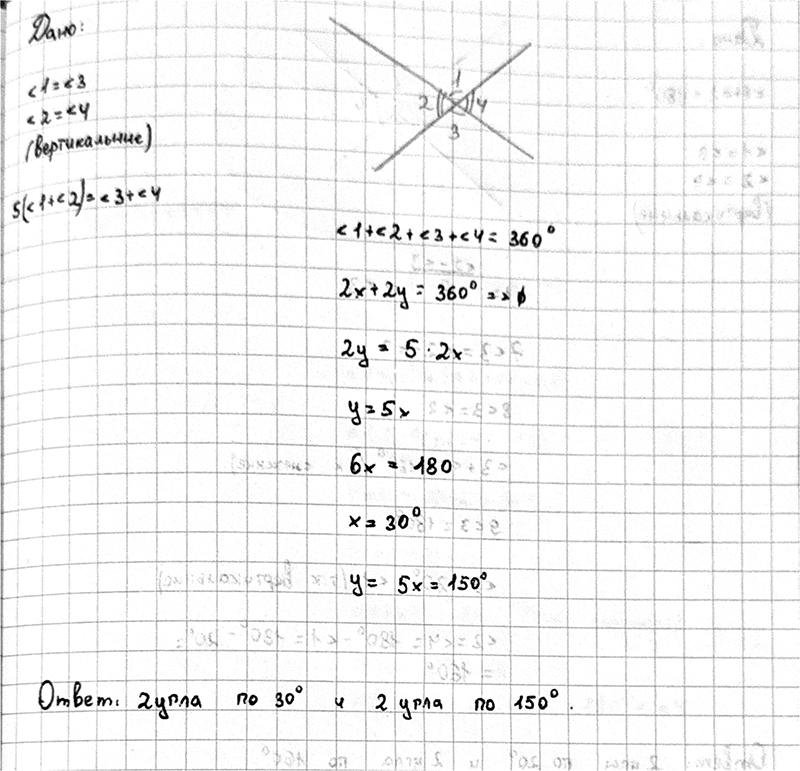 Дано:
<1=<3
<2=<4
(вертикальные)
5(<1+<2)=<3+<4
1
2 4
3
<1+<2+<3+<4=360°
2x+2y=360° =>
2y=5·2x
y=5x
6x=180
x=30°
y=5x=150°
Ответ: 2 угла по 30° и 2 угла по 150°.